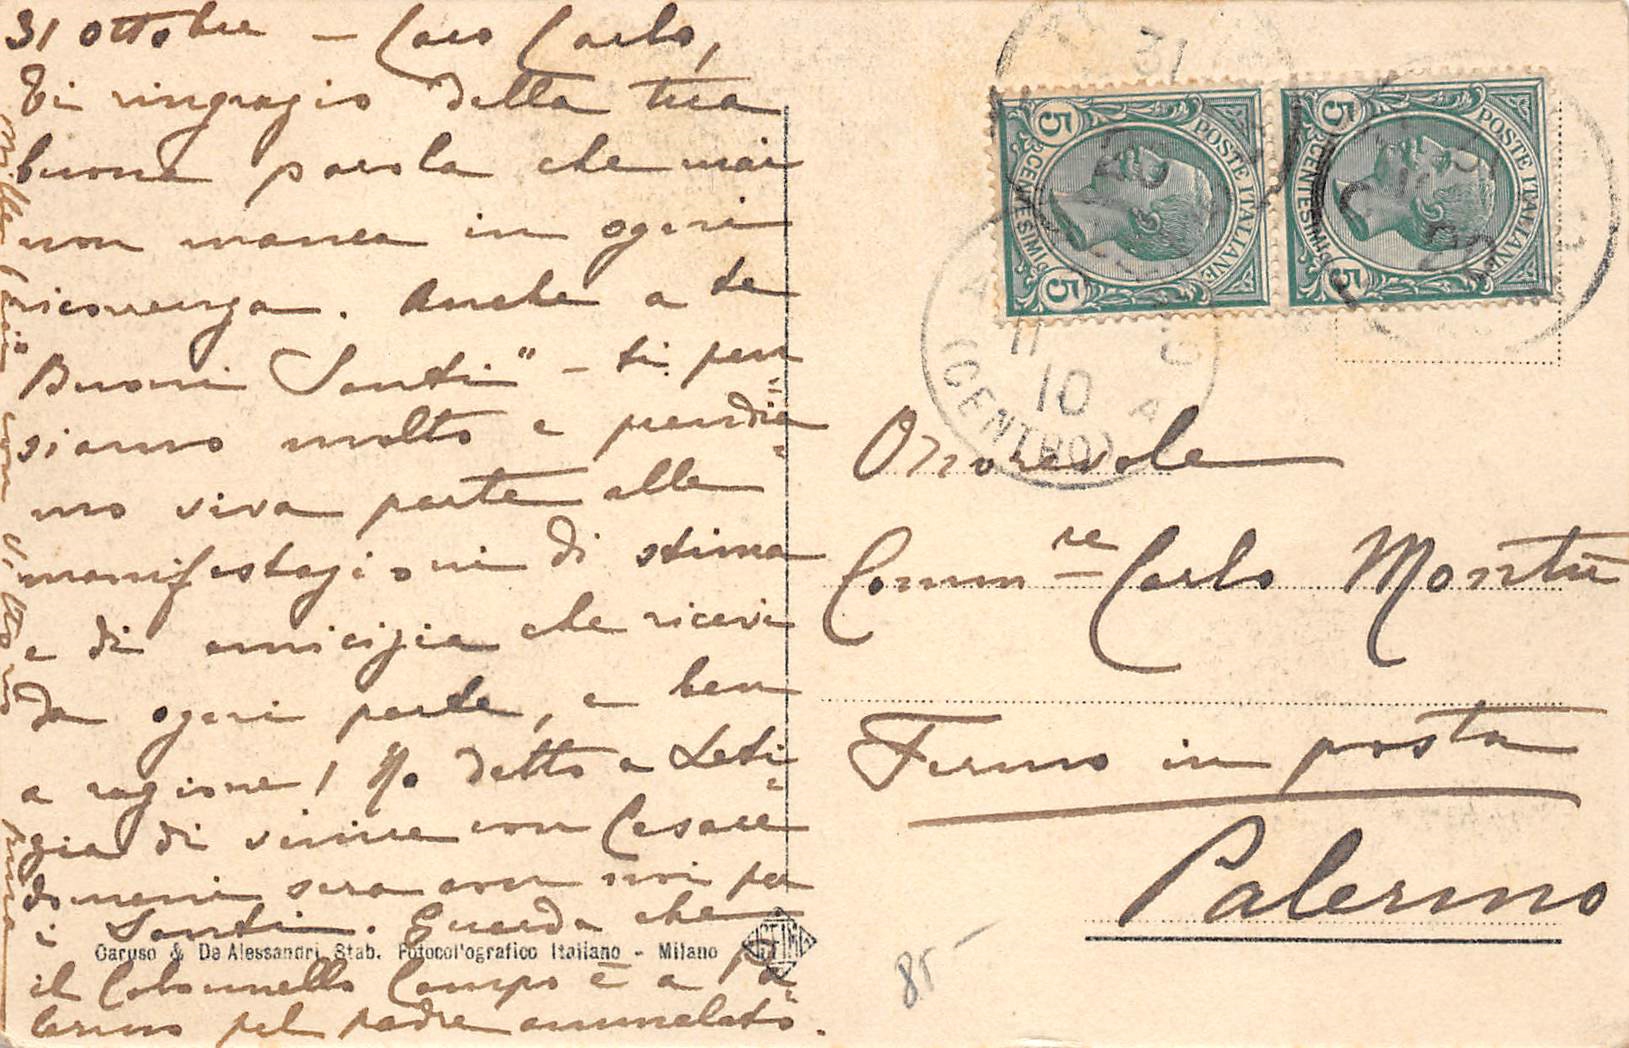 31 ottobre – Caro Carlo,
Ti ringrazio della tua
buona parola che mai
non manca in ogni
ricorrenza. Anche a te
"Buoni Santi" – ti pen
siamo molto e prendia-
mo viva parte alle
manifestazioni di stima
e di amicizia che ricevi
da ogni parte, e ben
a ragione! Ho detto a Leti-
zia di venire con Cesare
domani sera con noi per
i Santi. Guarda che
il Colonnello Campo è a Pa-
lermo pel padre ammalato.
Caruso & De Alessandri, Stab. Fotocollografico Italiano - Milano
POSTE ITALIANE
CENTESIMI
5
5
POSTE ITALIANE
CENTESIMI
5
5
31
11
10
(CENTRO)
Onorevole
Comm re Carlo Montù
Fermo in posta
Palermo
85 –